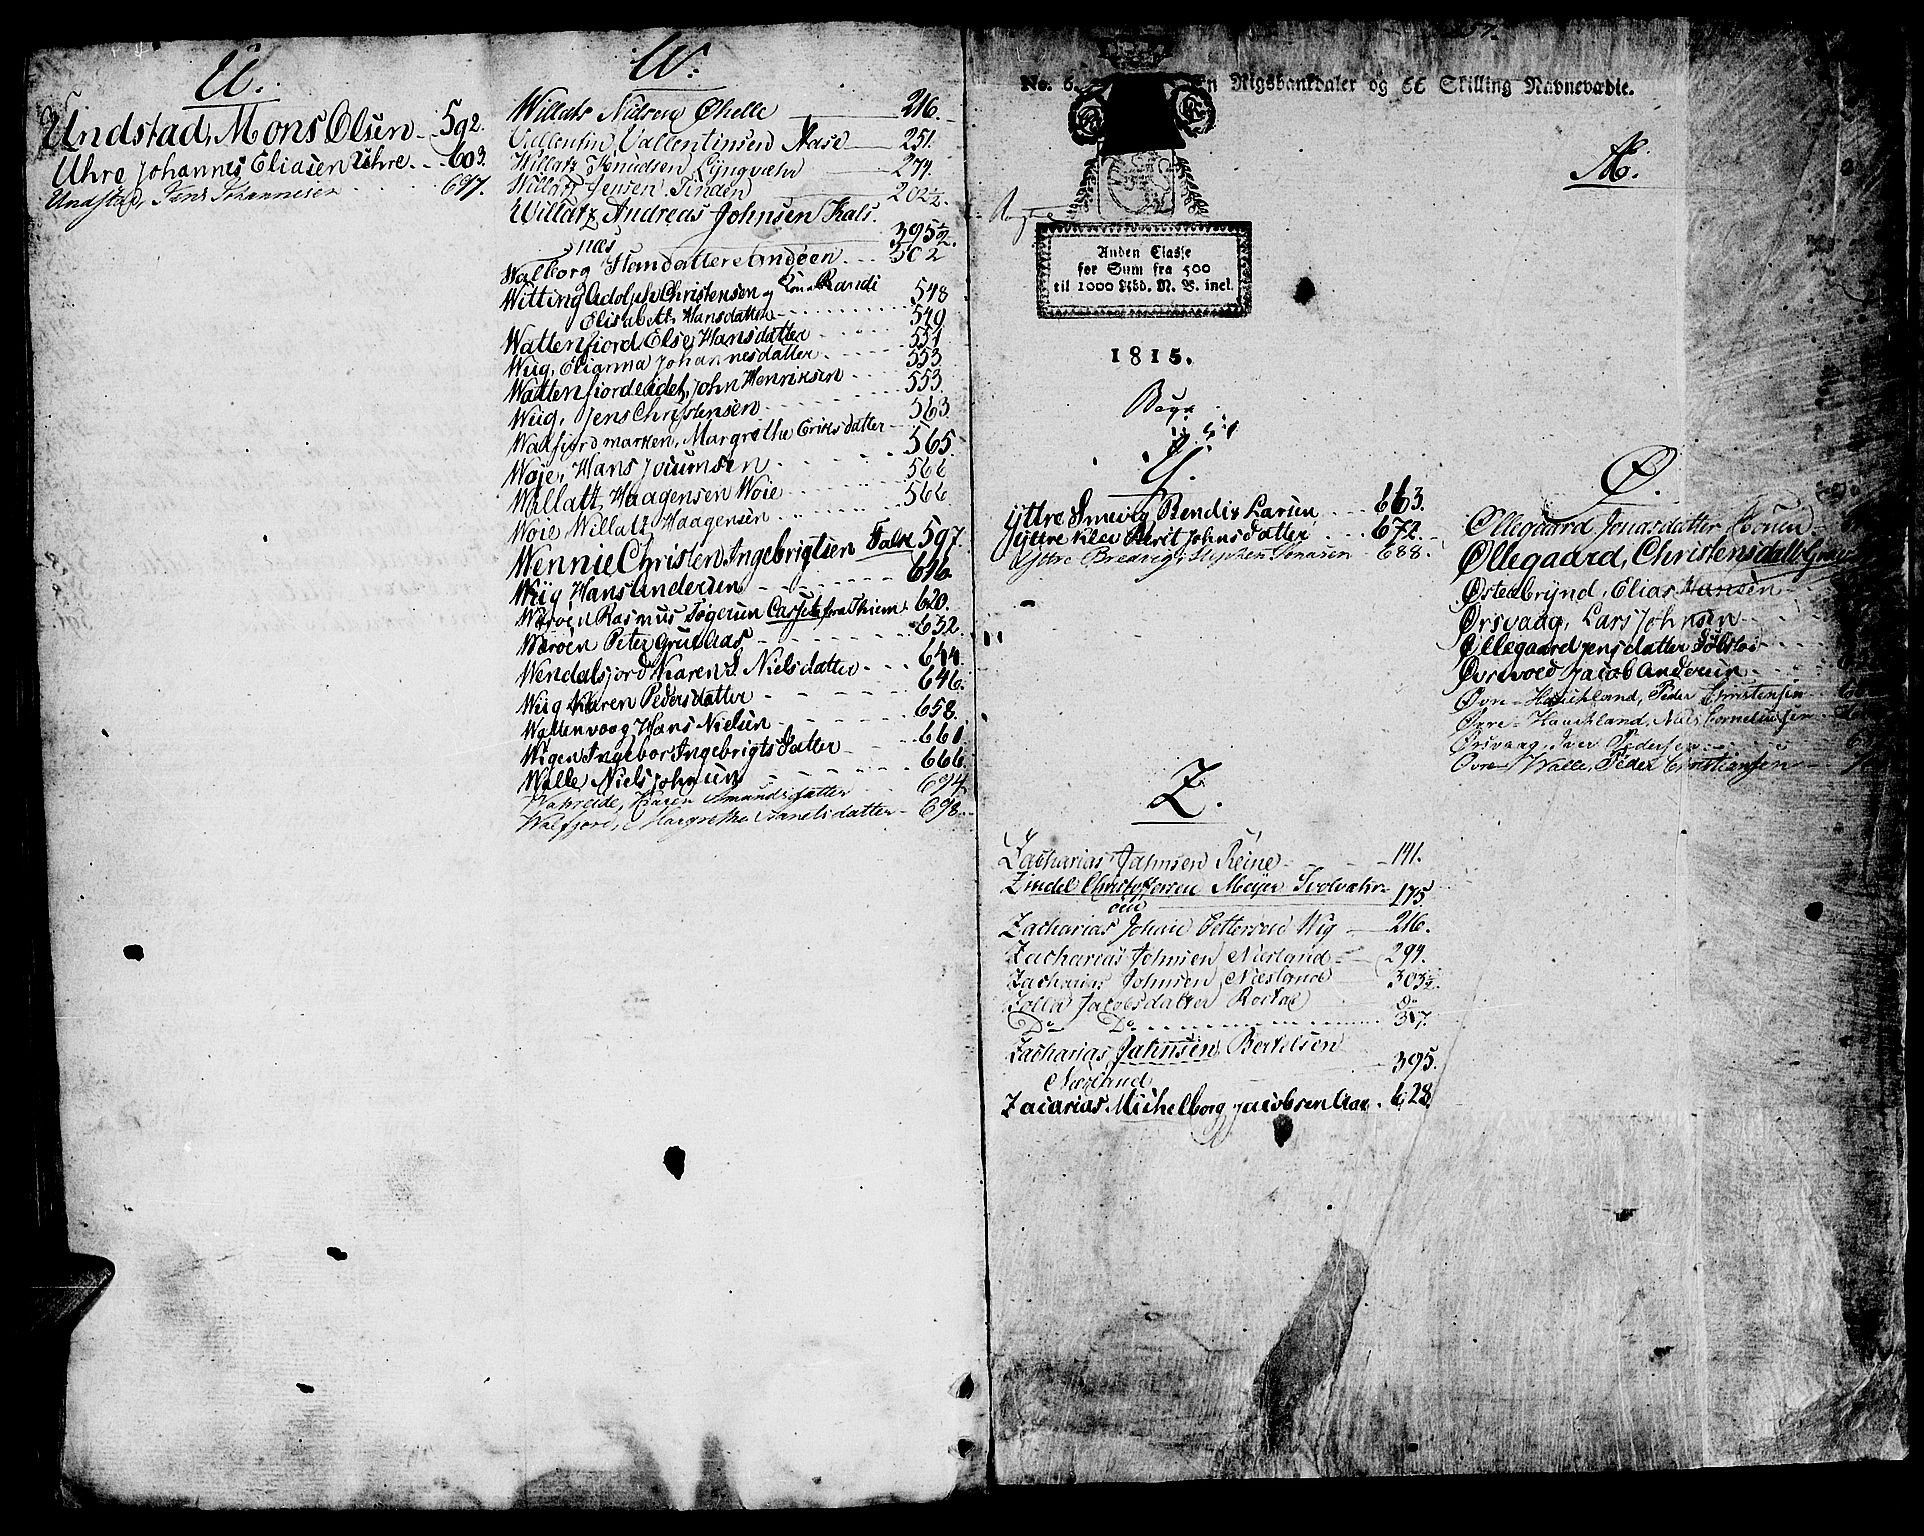 U.
Undstad, Mons Olsen 592.
Uhre Johannes Eliasen Uhre 603.
Undstad, Jens Johannesen 697.
W.
Willats Nielsen Chelle 216.
Vallentin Vallentinsen Aase 251.
Willatz Knudsen Lyngvæhr 274.
Willatz Jensen Tinden 202½.
Willatz Andreas Johnsen Kals
næs 395½.
Walborg Hansdatter Andøen 502
Witting Adolph Christensen og Kone Randi 548
Elisabeth Hansdatter 549
Wattenfiord Else Hansdatter 551
Wiig, Elianna Johannesdatter 553
Wattenfiordeidet, John Henriksen 553
Wiig, Jens Christensen 563
Walfiordmarken, Margrethe Eriksdatter 565.
Woie, Hans Joiumsen 566
Willatz Haagensen Woie 566
Woie Willatz Haagensen
Wennie Christen Ingebrigtsen Falk 597.
Wiig, Hans Andersen 616
Værøen Rasmus Tøgersen 620.
Værøen Peter 632.
Wendalsjord Karen S. Nielsdatter 644
Wiig Karen Pedersdatter 646.
Wattenvoog Hans Nielsen 658.
Wigen Ingebor Ingebrigtsdatter 661.
Walle Niels Johnsen 666.
Karen Amundsdatter 694
Walfjord, Margrethe Danielsdatter 698.
No. 6. En Rigsbankdaler og 66 Skilling Navneværdie.
Anden Classe
for Sum fra 500
til 1000 Rbd. N. V. incl.
1815.
Æ.
Y.
Yttre Smevig Rendix Larsen 663.
Yttre Klev Berit Johnsdatter 672.
Yttre Bredvig, Stephen Jonasen 688.
Z.
Zacharias Jahnsen Reine 141.
Zindel Christoffersen Meyer Svolvæhr
øen 175.
Zacharias Johan Pettersen Wig 216.
Zacharias Johnsen Næsland 294.
Zacharias Johnsen Næsland 303½.
Zolla Jacobsdatter Do
Do Do 317.
Zacharias Jahnsen Bertelsen
Næsland 395.
Zacarias Michelborg Jacobsen Aae 628
Ø.
Øllegaard Jonasdatter
Øllegaard, Christensdatter
Østerbrynd, Elias Hansen
Ørsvaag, Lars Johnsen
Øllegaard Jensdatter Sølstøi
Jacob Andersen
Øvre-Hauchland, Peder Christensen
Øvre-Hauchland, Niels Corneliussen
Ørsvaag, Iver Pedersen
Øvre Walle, Peder Christiansen